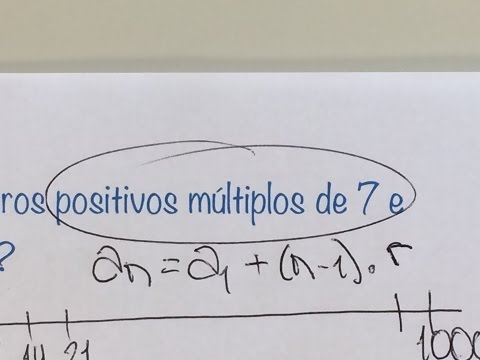 ros positivos múltiplos de 7 e
?
an = a1 + (n-1). r
14 21 1000